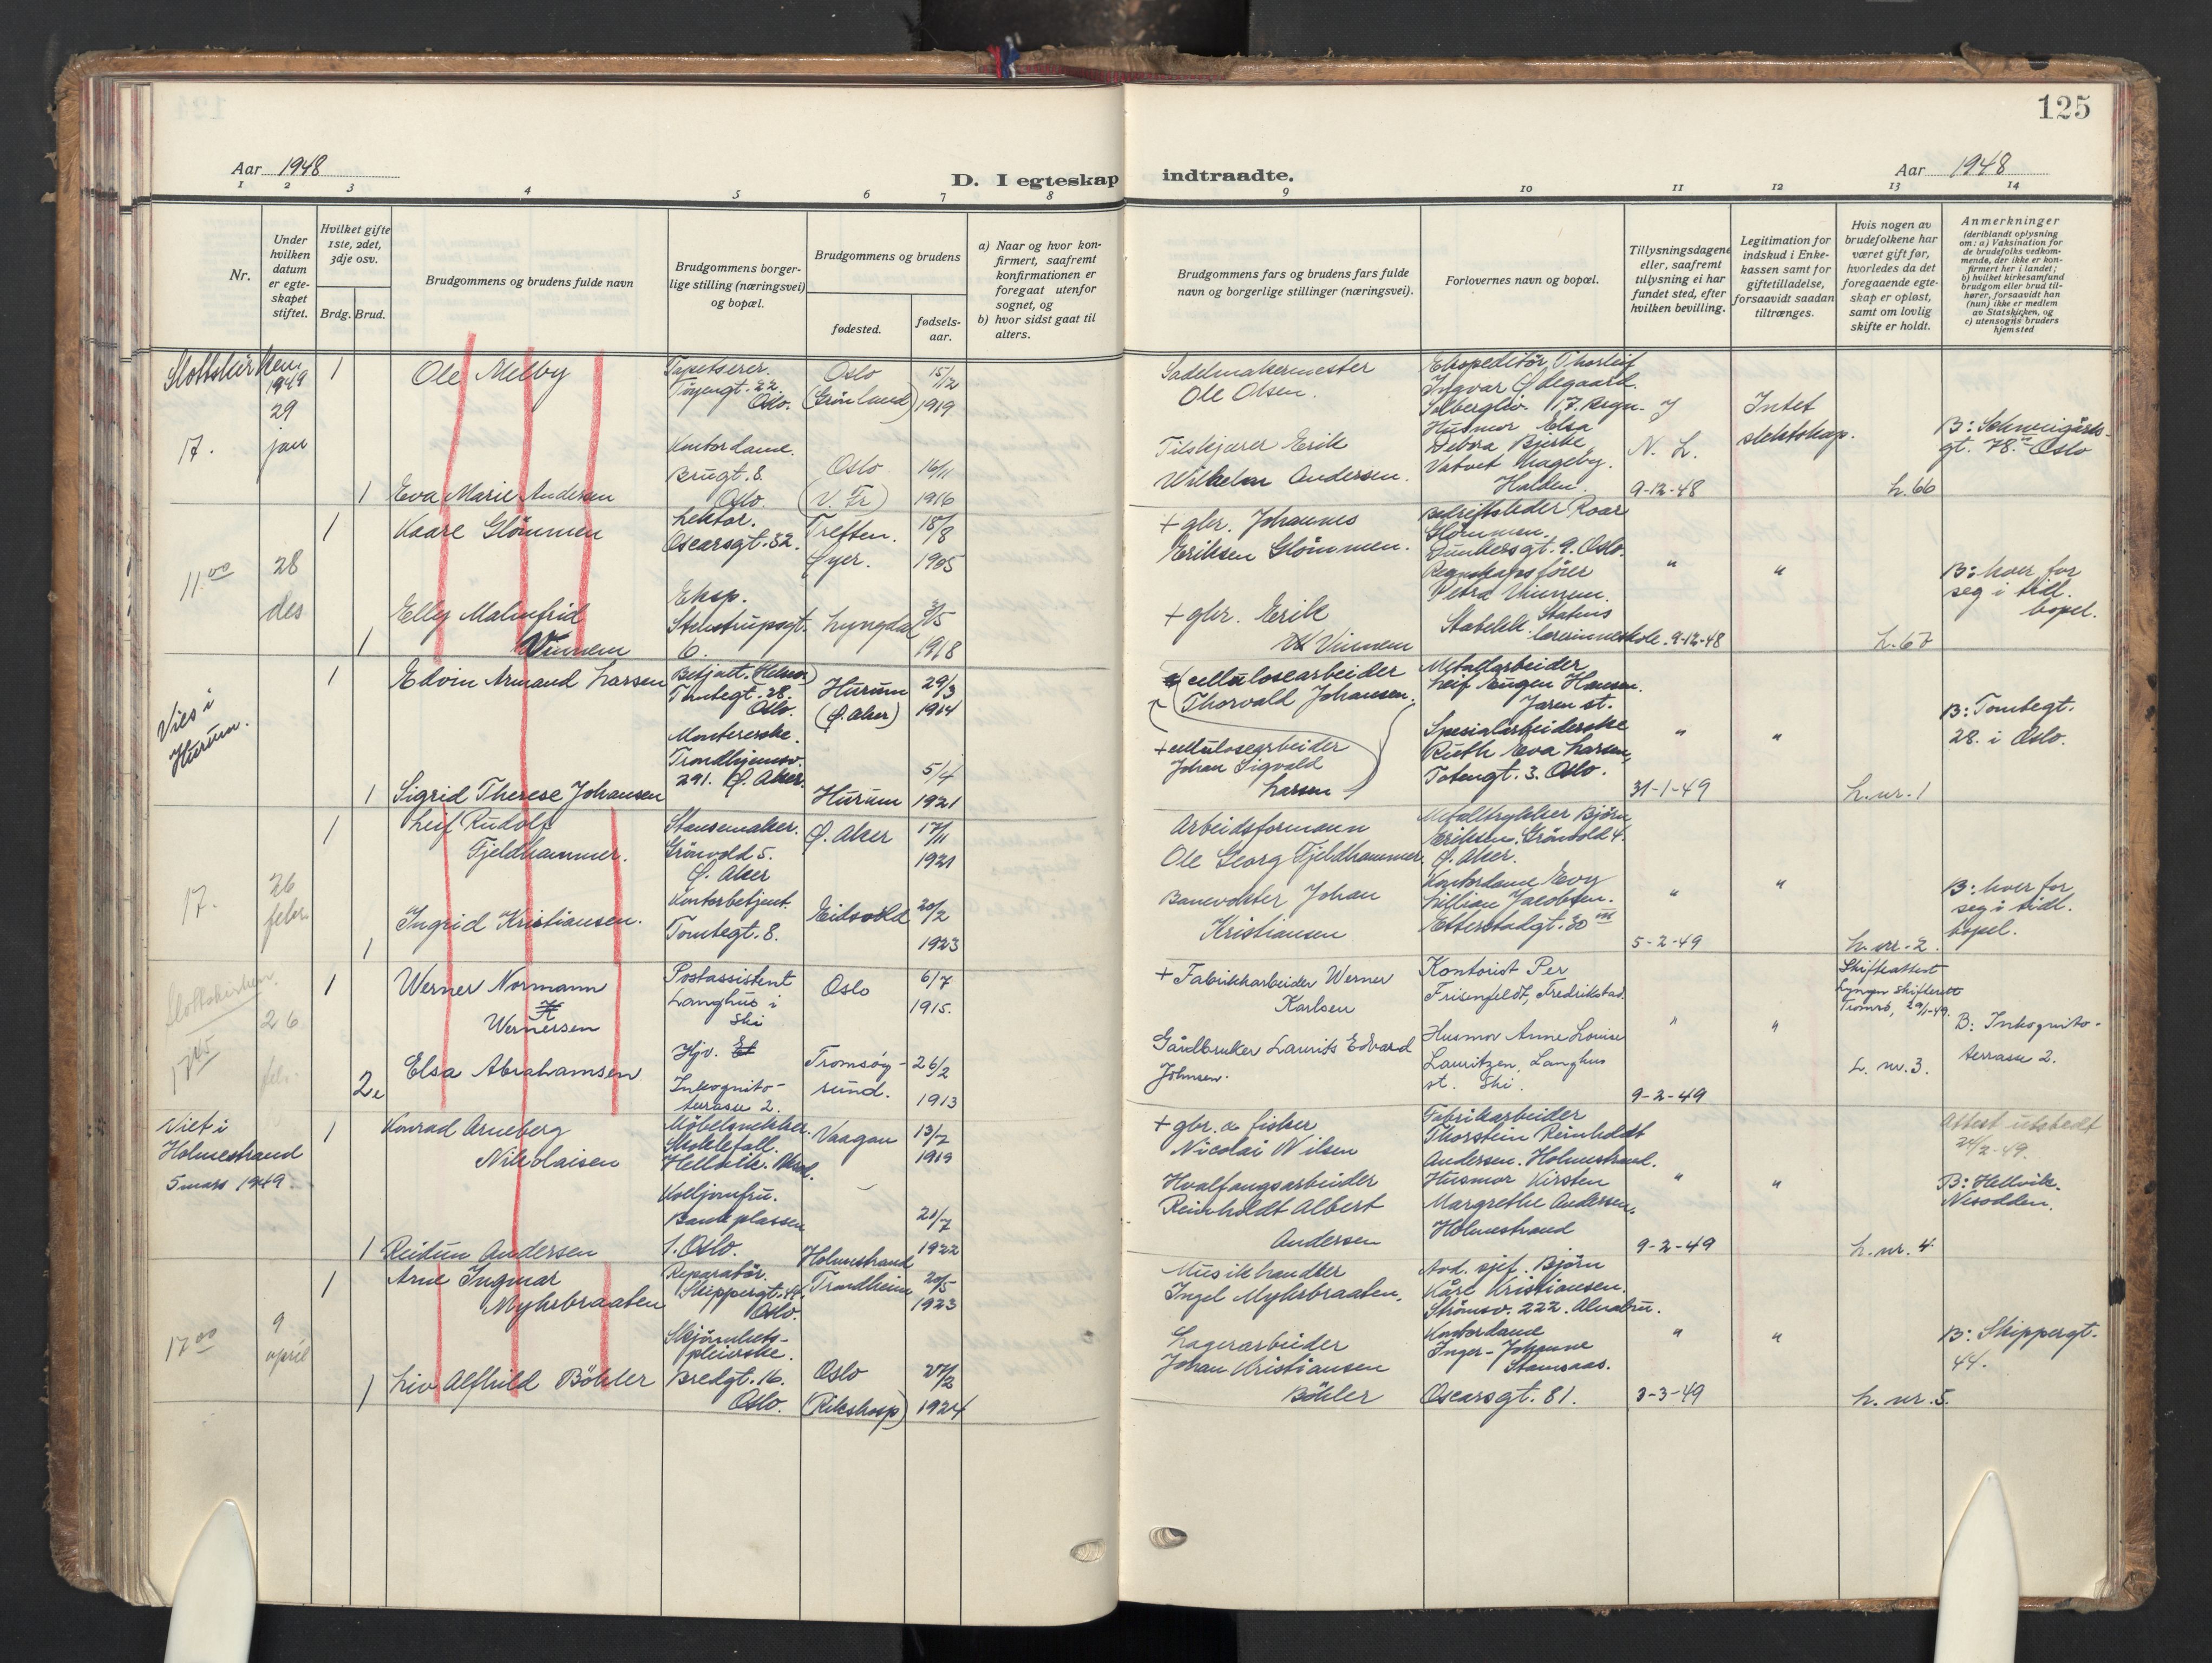 125
Aar 1948
D. I egteskap indtraadte.
Aar 1948
1 2 3 4 5 6 7 8 9 10 11 12 13 14
Nr.
Under hvilken datum er egte- skapet stiftet.
Hvilket gifte 1ste, 2det, 3dje osv.
Brdg. Brud.
Brudgommens og brudens fulde navn
Brudgommens borger- lige stilling (næringsvei) og bopæl.
Brudgommens og brudens
fødested.
fødsels- aar.
a) Naar og hvor kon- firmert, saafremt konfirmationen er foregaat utenfor sognet, og
b) hvor sidst gaat til alters.
Brudgommens fars og brudens fars fulde navn og borgerlige stillinger (næringsvei).
Forlovernes navn og bopæl.
Tillysningsdagene eller, saafremt tillysning ei har fundet sted, efter hvilken bevilling.
Legitimation for indskud i Enke- kassen samt for giftetilladelse, forsaavidt saadan tiltrænges.
Hvis nogen av brudefolkene har været gift før, hvorledes da det foregaaende egte- skap er opløst, samt om lovlig skifte er holdt.
Anmerkninger
(deriblandt oplysning om: a) Vaksination for de brudefolks vedkom- mende, der ikke er kon- firmert her i landet; b) hvilket kirkesamfund brudgom eller brud til- hører, forsaavidt han (hun) ikke er medlem av Statskirken, og c) utensogns bruders hjemsted
Slottskirken
1949
29
jan
17.
1
Ole Melby
Tapetserer.
Tøyengt. 22.
Oslo.
Oslo
(Grønland)
15/12
1919
Sadelmakermester
Ole Olsen.
Ekspeditør Thorleif
Ingvar Ødegaard.
Solberglia. 17. Brgn.
1 Eva Marie Andersen
Kontordame.
Brugt. 8.
Oslo
Oslo
(V. Fr)
16/11
1916
Tilskjærer Erik
Wilhelm Andersen.
Husmor Elsa
Debora Bjerke,
Vatvet Hageby.
Halden.
N. L.
9-12-48
Intet
slektskap.
L. 66
B: Schweigårds-
gt. 78. Oslo
11.00
28
des
1
Kaare Glömmen
Lektor.
Oscarsgt. 32.
Tretten.
Øyer.
18/8
1905
+ gbr. Johannes
Eriksen Glömmen.
Bedriftsleder Roar
Glömmen.
Dunkersgt. 9. Oslo.
1
Elly Malmfrid
Vinnem
Eksp.
Stenstrupsgt.
6.
Lyngdal
3/5
1918
+ gbr. Erik
Vinnem
Regnskapsfører
Petra Vinnem.
Stabekk Statens
lærerinneskole.
"
9-12-48
"
L. 67
B: hver for
seg i tidl.
bopel.
Vies i
Hurum.
1
Edvin Armand Larsen
Betjent.
Tomtegt. 28.
Oslo.
Hurum
(Ø. Aker)
29/3
1914
cellulosearbeider
Thorvald Johansen.
Metalarbeider
Leif Eugen Hansen.
Jaren st.
1 Sigrid Therese Johansen
Montererske.
Trondhjemsv.
291. Ø. Aker.
Hurum
5/4
1921
+ cellulosearbeider
Johan Sigvald
Larsen
Spesialarbeiderske
Ruth Eva Larsen,
Totengt. 3. Oslo.
"
31-1-49
"
L. nr. 1
B: Tomtegt.
28. i Oslo.
17.
26
febr.
1
Leif Rudolf
Fjeldhammer.
Stansemaker.
Grönvold 5.
Ø. Aker
Ø. Aker
17/11
1921
Arbeidsformann
Ole Georg Fjeldhammer
Metalltrykker Björn
Eriksen. Grönvold 4.
Ø. Aker.
1
Ingrid Kristiansen.
Kontorbetjent.
Tomtegt. 8.
Eidsvold
20/2
1923
Banevokter Johan
Kristiansen
Kontordame Evy
Lillian Jacobsen.
Etterstadgt. 30
"
5-2-49
"
L. nr. 2
B: hver for
seg i tidl.
bopel.
Slottskirken.
17 45
26
feb.
1
Werner Normann
Wernersen
Postassistent
Langhus i
Ski
Oslo
6/7
1915.
+ Fabrikkarbeider Werner
Karlsen
Kontorist Per
Frisenfeldt, Fredrikstad.
2e
Elsa Abrahamsen
Hjv.
Inkognito-
terasse 2.
Tromsøy-
sund.
26/2
1913
Gårdbruker Laurits Edvard
Johnsen.
Husmor Anne Louise
Lauritzen, Langhus
st. Ski.
"
9-2-49
"
Skifteattest
Lyngen Skifterett
Tromsö, 29/1-49.
L. nr. 3.
B: Inkognito-
terrasse 2.
Viet i
Holmestrand
5 mars 1949.
1
Konrad Arneberg
Nikolaisen
Möbelsnekker.
Skoklefall.
Hellvik. Nesod.
Vaagan
13/7
1919
+ gbr. & fisker
Nicolai Nilsen
Fabrikarbeider
Thorstein Reinholdt
Andersen. Holmestrand.
1 Reidun Andersen
Koldjomfru.
Bankplassen
1. Oslo.
Holmestrand
21/7
1922
Hvalfangsarbeider
Reinholdt Albert
Andersen
Husmor Kirsten
Margrethe Andersen,
Holmestrand
"
9-2-49
"
L. nr. 4
Attest utstedt
24/2-49.
B: Hellvik.
Nesodden.
17 00
9
april
1
Arne Ingmar
Myhrbraaten
Reparatör.
Skippergt. 44.
Oslo.
Trondheim
20/5
1923
Musikhandler
Ingel Myhrbraaten.
Avd. sjef. Björn
Kåre Kristiansen.
Strömsv. 222. Alnabru.
1 Liv Alfhild Böhler
Skjönnhets-
pleierske.
Bredgt. 16.
Oslo.
Oslo
(Rikshosp)
27/2
1924
Lagerarbeider
Johan Kristiansen
Böhler
Kontordame
Inger-Johanne
Stamsaas.
Oscarsgt. 81.
"
3-3-49
"
L. nr. 5.
B: Skippergt.
44.